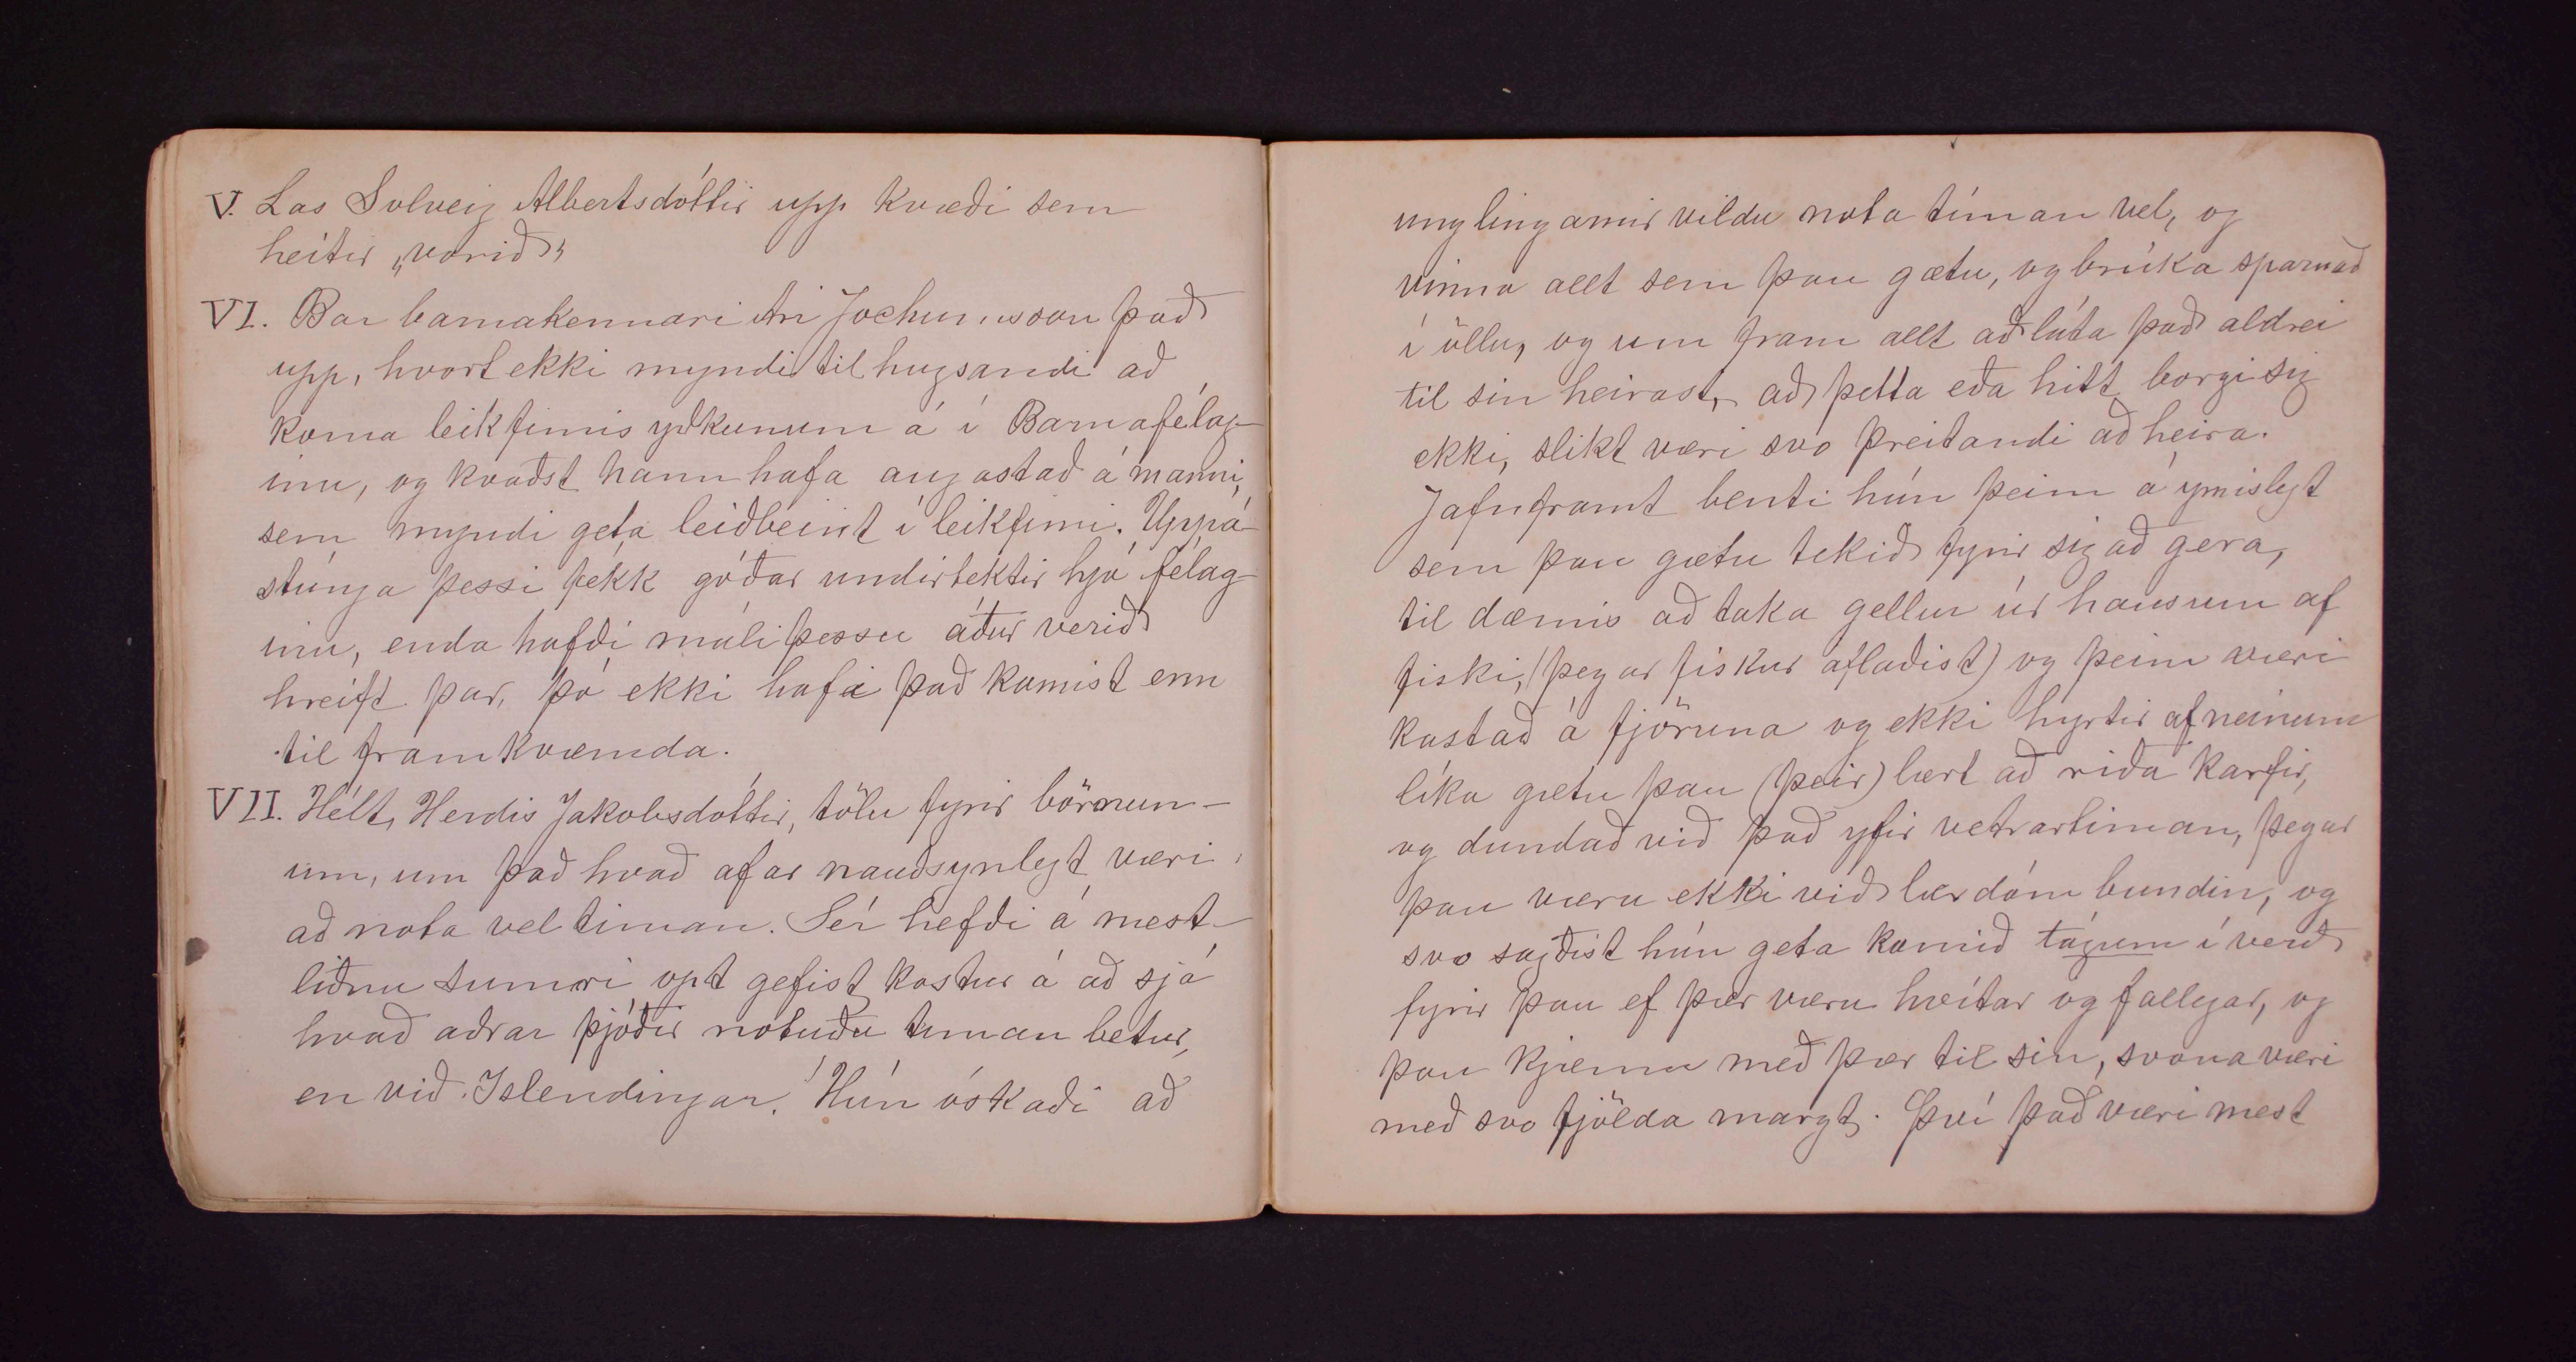 V. Las Solveig Albertsdóttir upp kvæði sem
heitir „vorið“
VI. Bar barnakennari Ari Jochumsson það
upp, hvort ekki myndi tilhugsandi að
koma leikfimis yðkunum á í Barnafélag-
inu, og kvaðst hann hafa augastað á manni,
sem myndi geta leiðbeint í leikfimi. Uppá-
stúnga þessi fékk góðar undirtektir hjá félag-
inu, enda hafði máli þessu áður verið
hreift þar, þó ekki hafi það komist enn
til framkvæmda.
VII. Hélt, Herdis Jakobsdóttir, tölu fyrir börnun-
um, um það hvað afar nauðsynlegt væri
að nota vel timan. Sér hefði á mest-
liðnu sumri opt gefist kostur á að sjá
hvað aðrar þjóðir notuðu timan betur,
en við Islendingar. Hún óskaði að
unglingarnir vildu nota tíman vel, og
vinna allt sem þau gætu, og brúka sparnað
í öllu, og um fram allt að láta það aldrei
til sin heirast, að þetta eða hitt borgi sig
ekki, slikt væri svo þreitandi að heira.
Jafnframt benti hún þeim á ymislegt
sem þau gætu tekið fyrir sig að gera,
til dæmis að taka gellur úr hausum af
fiski, (þegar fiskur aflaðist) og þeim væri
kastað á fjöruna og ekki hyrtir af neinum
líka gætu þau (þeir) lært að riða karfir,
og dundað við það yfir vetrartiman, þegar
þau væru ekki við lærdóm bundin, og
svo sagðist hún geta komið tágum í verð
fyrir þau ef þær væru hvítar og fallegar, og
þau kjæmu með þær til sin, svona væri
með svo fjölda margt. Því það væri mest